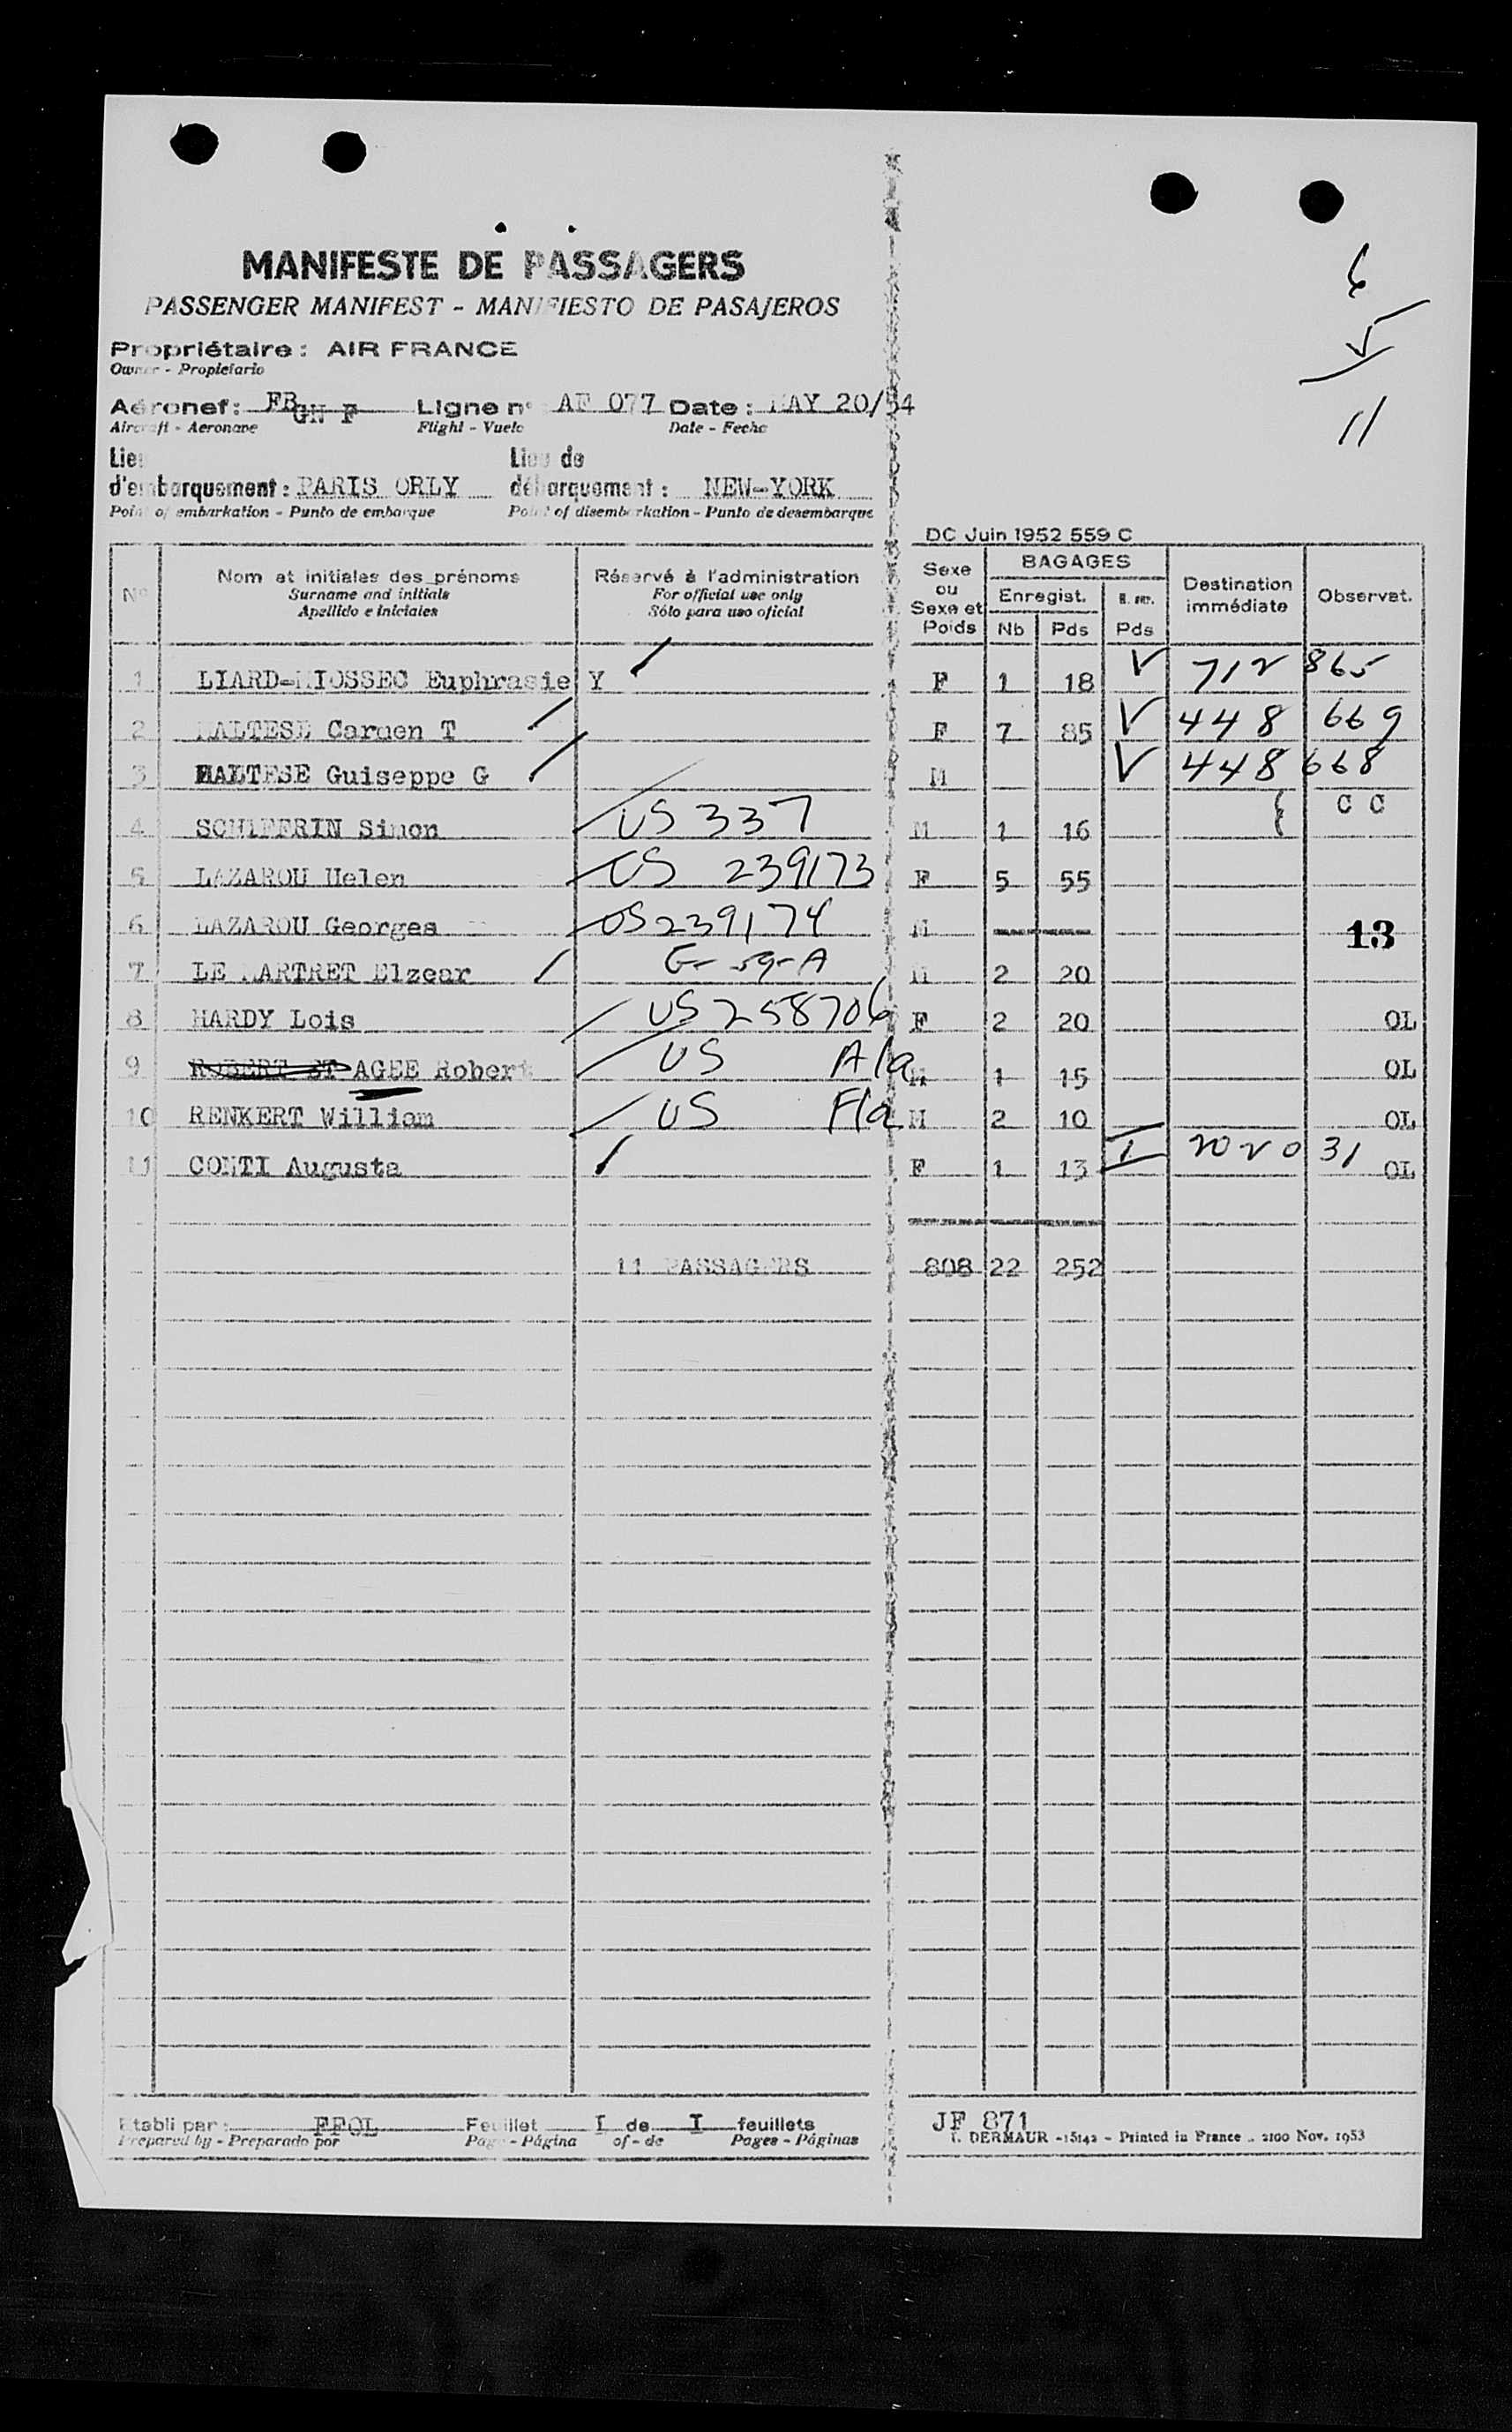 6
5
11
MANIFESTE DE PASSAGERS
PASSENGER MANIFEST - MANIFIESTO DE PASAJEROS
Propriétaire : AIR FRANCE
Owner - Propietario
Aéronef : FB GN F Ligne n° AF 077 Date : MAY 20/54
Aircraft - Aeronave Flight - Vuelo Date - Fecha
Lieu Lieu de
d'embarquement : PARIS ORLY débarquement : NEW-YORK
Point of embarkation - Punto de embarque Point of disembarkation - Punto de desembarque
DC Juin 1952 559 C
N° Nom et initiales des prénoms Réservé à l'administration Sexe ou Sexe et Poids BAGAGES Destination immédiate Observat.
Surname and initials For official use only Enregist.
Apellido e iniciales Sólo para uso oficial Nb Pds Pds
1 LIARD-MIOSSEC Euphrasie Y F 1 18 V 712 865
2 MALTESE Carmen T F 7 85 V 448 669
3 MALTESE Guiseppe G M V 448 668
4 SCHIFFRIN Simon US 337 M 1 16 { C C
5 LAZAROU Helen US 239173 F 5 55
6 LAZAROU Georges US 239174 M 13
7 LE MARTRET Elzear G- 59-A M 2 20
8 HARDY Lois US 258706 F 2 20 OL
9 ROBERT ST AGEE Robert US Ala M 1 15 OL
10 RENKERT William US Fla M 2 10 OL
11 CONTI Augusta F 1 13 I 2020 31 OL
11 PASSAGERS 808 22 252
Etabli par : FFOL Feuillet I de I feuillets
Prepared by - Preparado por Page - Página of - de Pages - Páginas
JF 871
I. DERMAUR - 15142 - Printed in France .. 2100 Nov. 1953